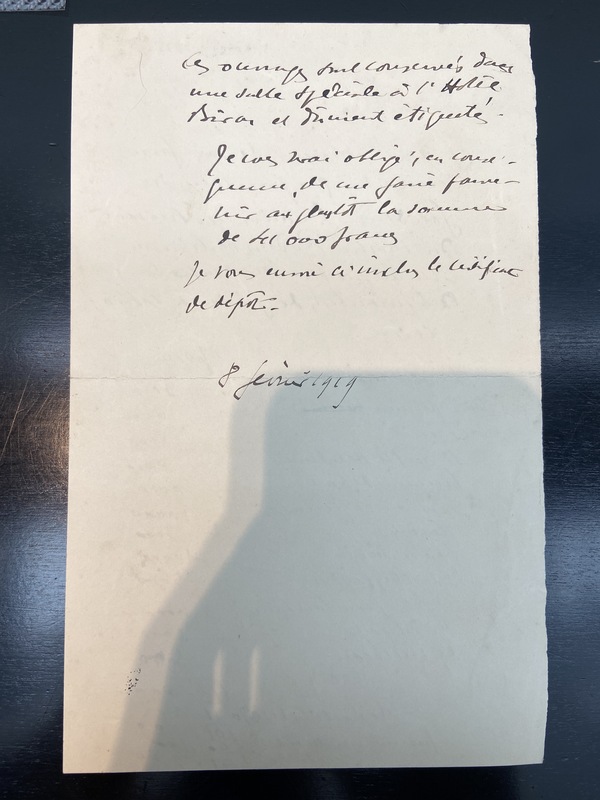 Ces ouvrages sont conservés dans
une salle spéciale à l'Hôtel
Biron et dûment étiquetés.
Je vous serai obligé, en consé-
quence, de me faire parve-
nir au plustôt la somme
de 41 000 francs
Je vous envoie ci inclus le certificat
de dépôt.
8 février 1919